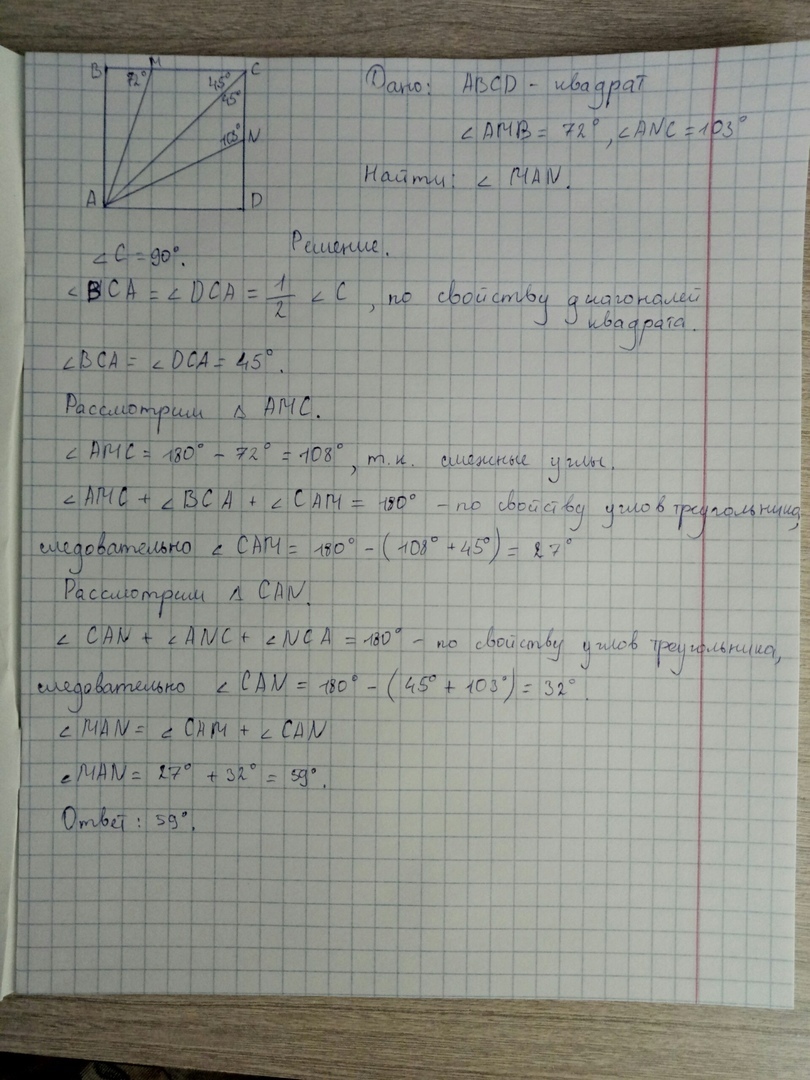 B M C
72° 45°
45°
103° N
A D
Дано: ABCD - квадрат
∠AMB = 72°, ∠ANC = 103°
Найти: ∠ MAN.
Решение.
∠C = 90°.
∠BCA = ∠DCA = 1/2 ∠C, по свойству диагоналей
квадрата.
∠BCA = ∠DCA = 45°.
Рассмотрим Δ AMC.
∠AMC = 180° - 72° = 108°, т.к. смежные углы.
∠AMC + ∠BCA + ∠CAM = 180° - по свойству углов треугольника,
следовательно ∠ CAM = 180° - (108° + 45°) = 27°
Рассмотрим Δ CAN.
∠ CAN + ∠ANC + ∠NCA = 180° - по свойству углов треугольника,
следовательно ∠CAN = 180° - (45° + 103°) = 32°.
∠MAN = ∠CAM + ∠CAN
∠MAN = 27° + 32° = 59°.
Ответ: 59°.